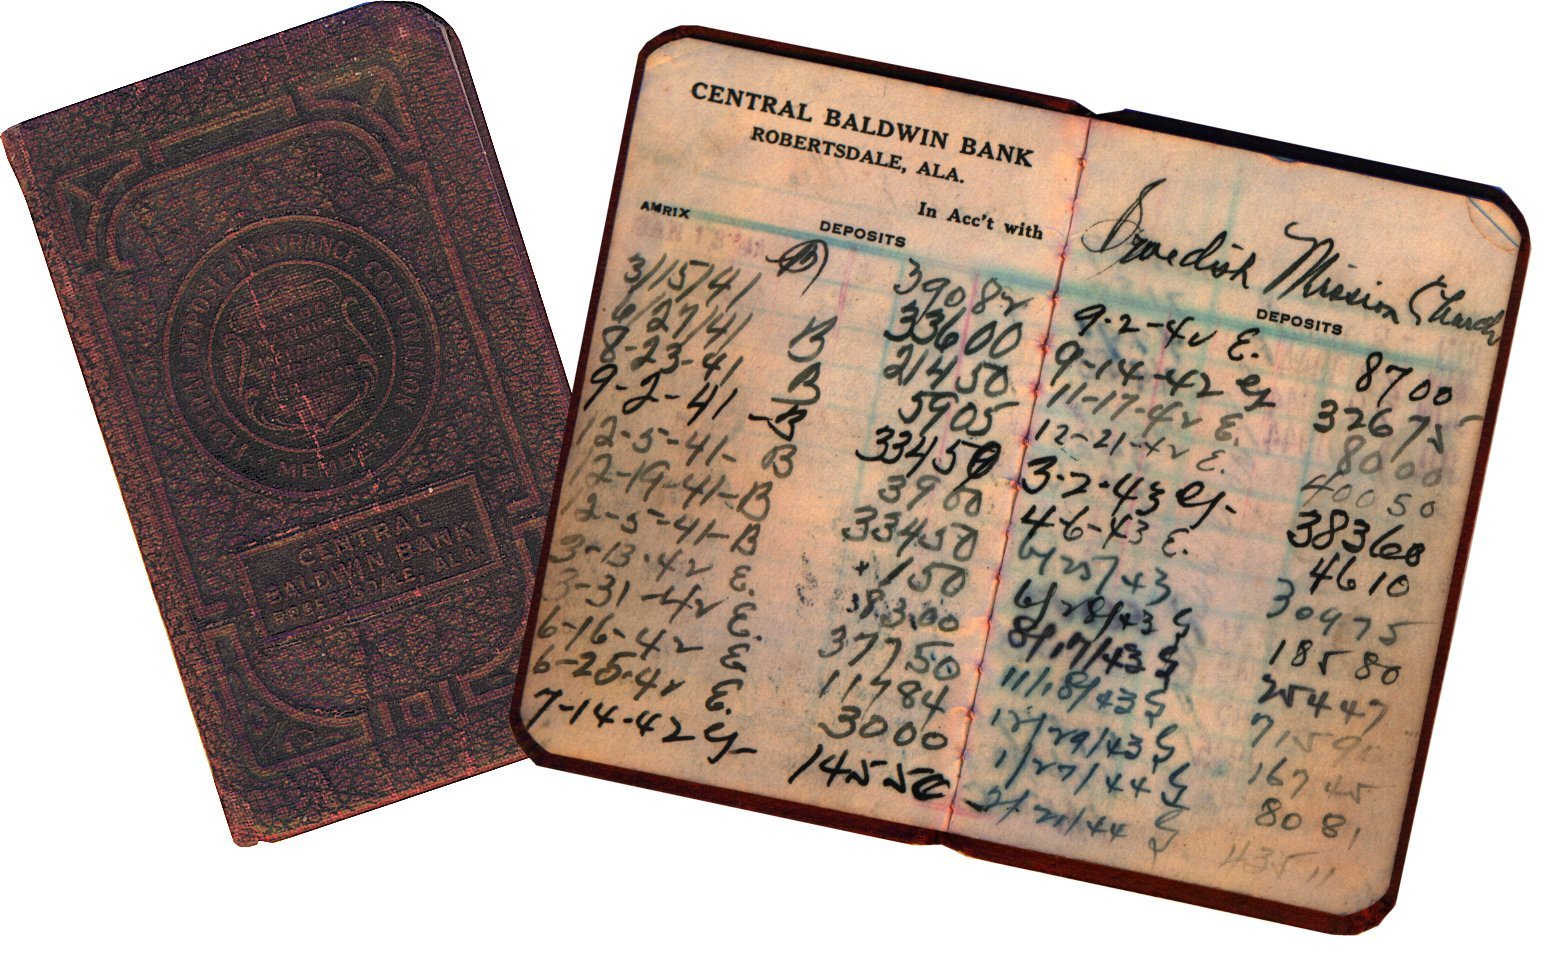 FEDERAL DEPOSIT INSURANCE CORPORATION
MEMBERS
CENTRAL
BALDWIN BANK
ROBERTSDALE, ALA.
CENTRAL BALDWIN BANK
ROBERTSDALE, ALA.
In Acc't with
Swedish Mission Church
AMRIX
DEPOSITS
3/15/41 B 390 82
6/27/41 B 336 00
8-23-41 B 214 50
9-2-41 B 59 05
12-5-41- B 334 50
12-19-41-B 39 00
12-5-41-B 334 50
3-13-42 E. 1 50
3-31-42 E. 383.00
6-16-42 E 377 50
6-25-42 E. 117 84
7-14-42 30 00
145 50
DEPOSITS
9-2-42 E. 87 00
9-14-42 326 75
11-17-42 E. 80 00
12-21-42 E. 400 50
3-2-43 383 60
4-6-43 E. 46 10
6/25/43 309 75
6/28/43 G 185 80
8/17/43 G 254 47
11/18/43 G 71
12/29/43 G 167 45
1/27/44 G 80 81
2/21/44 G 435 11